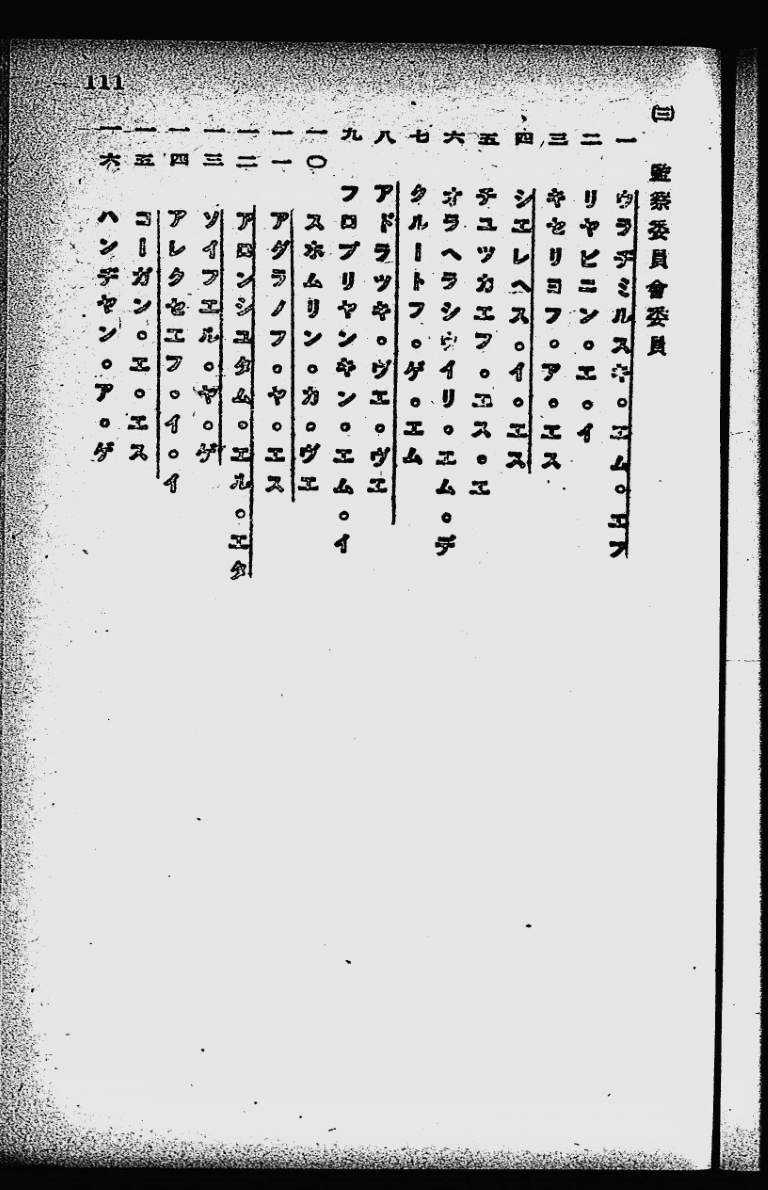 111
㈢ 監察委員會委員
一 ウラヂミルスキ。エム。エフ
二 リヤビニン。エ。イ
三 キセリヨフ。ア。エス
四 シエレヘス。イ。エス
五 チユツカエフ。エス。エ
六 オラヘラシウイリ。エム。デ
七 クルートフ。ゲ。エム
八 アドラツキ。ヴエ。ヴエ
九 フロプリヤンキン。エム。イ
一〇 スホムリン。カ。ヴエ
一一 アダラノフ。ヤ。エス
一二 アロンシユタム。エル。エタ
一三 ソイフエル。ヤ。ゲ
一四 アレクセエフ。イ。イ
一五 コーガン。エ。エス
一六 ハンヂヤン。ア。ゲ